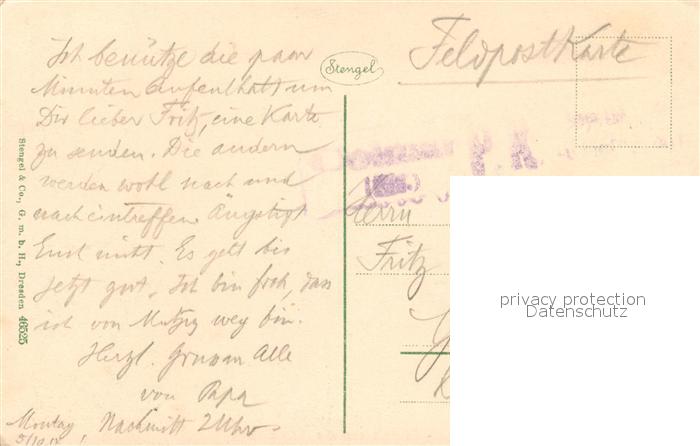 Ich benütze die paar
Minuten Aufenthalt um
Dir lieber Fritz, eine Karte
zu senden. Die andern
werden wohl nach und
nach eintreffen. Ängstigt
Euch nicht. Es geht bis
jetzt gut. Ich bin froh, dass
ich von Mutzig weg bin.
Herzl. Gruss an Alle
von Papa
Montag Nachmitt 2 Uhr
Stengel & Co., G. m. b. H., Dresden 46525
Stengel
Feldpostkarte
Herrn
Fritz
privacy protection
Datenschutz